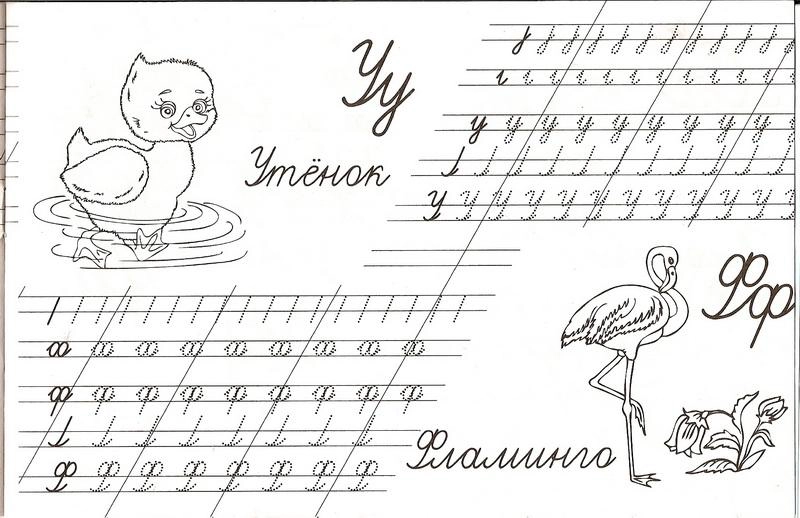 Уу
Утёнок
у у у у у у у у у у
У У У У У У У У У У У
Фф
Фламинго
ф ф ф ф ф ф ф ф ф
Ф Ф Ф Ф Ф Ф Ф Ф